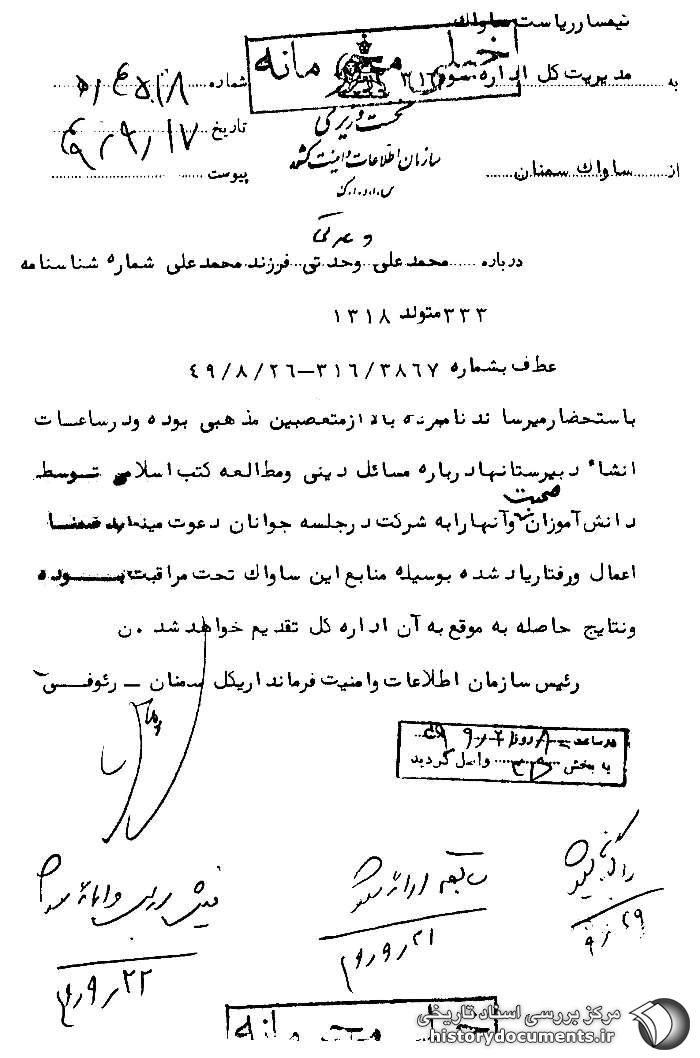 تیمسار ریاست ساواک
خیلی محرمانه
به مدیریت کل اداره سوم ۳۱۶
شماره ۵۱۴۵/۸
نخست وزیری
تاریخ ۴۹/۹/۱۷
سازمان اطلاعات و امنیت کشور
از ساواک سمنان
پیوست
س.ا.و.ا.ک
درباره محمدعلی وحدتی فرزند محمدعلی شماره شناسنامه
۳۳۳ متولد ۱۳۱۸
عطف بشماره ۳۱۶/۳۸۶۷-۴۹/۸/۲۶
باستحضار میرساند نامبرده بالا از متعصبین مذهبی بوده و در ساعات
انشاء دبیرستانها درباره مسائل دینی و مطالعه کتب اسلامی توسط
دانش آموزان صحبت و آنها را به شرکت در جلسه جوانان دعوت مینماید ضمنا
اعمال و رفتار یاد شده بوسیله منابع این ساواک تحت مراقبت بوده
و نتایج حاصله به موقع به آن اداره کل تقدیم خواهد شد ن.
رئیس سازمان اطلاعات و امنیت فرمانداریکل سمنان - رئوفی
در ساعت ۸ روز ۴۹/۹/۲۱
به بخش واصل گردید
سابقه ارائه شود
۲۹/۹
۲۱/۹/۴۹
۲۲/۹/۴۹
خیلی محرمانه
مرکز بررسی اسناد تاریخی
historydocuments.ir